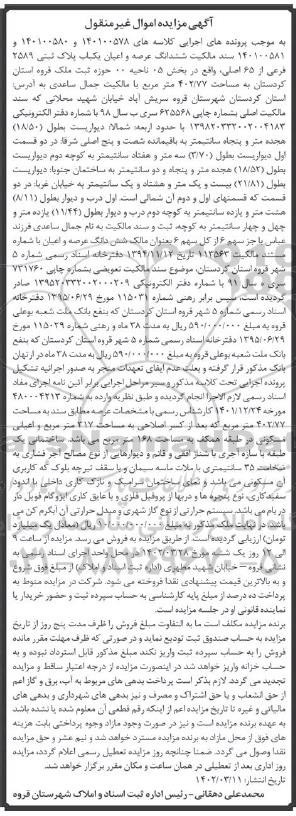 آگهی مزایده اموال غیر منقول
به موجب پرونده های اجرایی کلاسه های ۱۴۰۱۰۰۵۷۸ و ۱۴۰۱۰۰۵۸۰ و
۱۴۰۱۰۰۵۸۱ سند مالکیت ششدانگ عرصه و اعیان یکباب پلاک ثبتی ۲۵۸۹
فرعی از ۶۵ اصلی، واقع در بخش ۰۵ ناحیه ۰۰ حوزه ثبت ملک قروه استان
کردستان به مساحت ۴۰۲/۷۷ متر مربع با مالکیت جمال ساعدی به آدرس:
استان کردستان شهرستان قروه سریش آباد خیابان شهید محلاتی که سند
مالکیت اصلی بشماره چاپی ۶۲۵۵۶۸ سری ب سال ۹۸ با شماره دفتر الکترونیکی
۱۳۹۸۲۰۳۳۲۰۰۲۰۰۴۱۸۳ با حدود اربعه: شمالا: دیواریست بطول (۱۸/۵۰)
هجده متر و پنجاه سانتیمتر به باقیمانده شصت و پنج اصلی شرقا: در دو قسمت
اول دیواریست بطول (۳/۷۰) سه متر و هفتاد سانتیمتر به کوچه دوم دیواریست
بطول (۱۸/۵۲) هجده متر و پنجاه و دو سانتیمتر به ساختمان جنوبا: دیواریست
بطول (۲۱/۸۱) بیست و یک متر و هشتاد و یک سانتیمتر به خیابان غربا: در دو
قسمت که قسمتهای اول و دوم آن شمالی است. اول درب و دیوار بطول (۸/۱۱)
هشت متر و یازده سانتیمتر به کوچه دوم درب و دیوار بطول (۱۱/۴۴) یازده متر و
چهل و چهار سانتیمتر به کوچه، ثبت و سند مالکیت به نام جمال ساعدی فرزند
عباس با جز سهم ۶ از کل سهم ۶ بعنوان مالک شش دانگ عرصه و اعیان با شماره
مستند مالکیت ۱۱۳۵۶۳ تاریخ ۱۳۹۴/۱۲/۲۴ دفترخانه اسناد رسمی شماره ۵
شهر قروه استان کردستان، موضوع سند مالکیت تعویضی بشماره چاپی ۷۳۱۷۶۰
سری سال ۹۱ با شماره دفتر الکترونیکی ۱۳۹۵۲۰۳۳۲۰۰۲۰۰۰۲۰۹ صادر
گردیده است، سپس برابر رهنی شماره ۱۱۵۰۳۱ مورخ ۱۳۹۵/۰۶/۲۹ دفترخانه
اسناد رسمی شماره ۵ شهر قروه استان کردستان که بنفع بانک ملت شعبه بوعلی
قروه به مبلغ ۵۹۰/۰۰۰/۰۰۰ ریال به مدت ۳۸ ماه و رهنی شماره ۱۱۵۰۲۹ مورخ
۱۳۹۵/۰۶/۲۹ دفترخانه اسناد رسمی شماره ۵ شهر قروه استان کردستان که بنفع
بانک ملت شعبه بوعلی قروه به مبلغ ۵۹۰/۰۰۰/۰۰۰ ریال به مدت ۳۸ ماه در ارتهان
بانک مذکور قرار گرفته و بعلت عدم ایفای تعهدات منجر به صدور اجرائیه تشکیل
پرونده اجرایی تحت کلاسه مذکور و سیر مراحل اجرایی برابر آئین نامه اجرای مفاد
اسناد رسمی لازم الاجرا انجام گردیده و طبق نظریه وارده به شماره ۴۸۰۰۰۴۲۱۳
مورخه ۱۴۰۱/۱۲/۲۴ کارشناس رسمی با مشخصات عرصه مطابق سند به مساحت
۴۰۲/۷۷ متر مربع که بعد از کسر اصلاحی به مساحت ۲۱۷ متر مربع و اعیانی
مسکونی در طبقه همکف به مساحت ۱۶۸ متر مربع می باشد. ساختمان یک
طبقه با سازه آجری با شناژ افقی و قائم و دیوارهایی از نوع مصالح آجر فشاری به
ضخامت ۳۵ سانتیمتری با ملات ماسه سیمان و با سقف تیرچه بلوک که کاربری
آن مسکونی می باشد و نمای ساختمان سرامیک و نازک کاری داخلی با اندود
سفیدکاری، نوع پنجره ها و دربها از پروفیل فلزی و با عایق کاری ایزوگام فویل دار
در بام می باشد. سیستم حرارتی از نوع گاز شهری و مبدل حرارتی آن آبگرم کن می
توبان) ارزیابی گردیده است. از طریق مزایده به فروش می رسد. مزایده از ساعت ۹
الی ۱۲ روز یک شنبه مورخ ۱۴۰۲/۰۳/۲۸ در محل اداره اجرای اسناد رسمی به
نشانی قروه – خیابان شهید مطهری (اداره ثبت اسناد و املاک) از مبلغ فوق شروع
و به بالاترین قیمت پیشنهادی نقدا فروخته می شود. شرکت در مزایده منوط به
پرداخت ده درصد از مبلغ پایه کارشناسی به حساب سپرده ثبت و حضور خریدار یا
نماینده قانونی او در جلسه مزایده است.
برنده مزایده مکلف است ما به التفاوت مبلغ فروش را ظرف مدت پنج روز از تاریخ
مزایده به حساب صندوق ثبت تودیع نماید و در صورتی که ظرف مهلت مقرر مانده
فروش را به حساب سپرده ثبت واریز نکند مبلغ مذکور قابل استرداد نبوده و به
حساب خزانه واریز خواهد شد در اینصورت مزایده از درجه اعتبار ساقط و مزایده
تجدید می گردد. لازم بذکر است پرداخت بدهی های مربوط به آب، برق و گاز اعم
از حق انشعاب و یا حق اشتراک و مصرف و نیز بدهی های شهرداری و بدهی های
مالیاتی و غیره تا تاریخ مزایده اعم از اینکه رقم قطعی آن معلوم شده یا نشده باشد
به عهده برنده مزایده است و نیز در صورت وجود مازاد وجوه پرداختی بابت هزینه
های فوق از محل مازاد به برنده مزایده مسترد خواهد شد و نیم عشر و حق مزایده
نقدا وصول می گردد. ضمنا چنانچه روز مزایده تعطیل رسمی اعلام گردد، مزایده
روز اداری بعد از تعطیلی در همان ساعت و مکان مقرر برگزار خواهد شد.
تاریخ انتشار: ۱۴۰۲/۰۳/۱۱
محمدعلی دهقانی – رئیس اداره ثبت اسناد و املاک شهرستان قروه